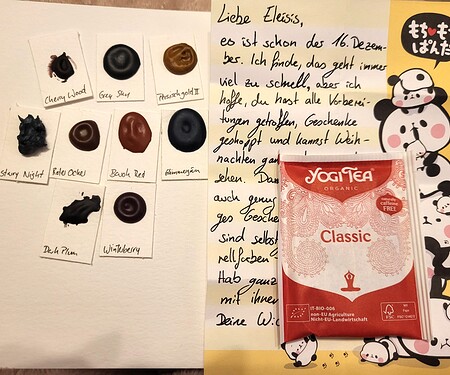 Cherry Wood
Grey Sky
Pfirsichgold II
Starry Night
Roter Ocker
Bowh Red
Dark Plum
Winterberry
Liebe Eleisis,
es ist schon der 16. Dezem-
ber. Ich finde, das geht immer
viel zu schnell, aber ich
hoffe, du hast alle Vorberei-
tungen getroffen, Geschenke
geshoppt und kannst Weih-
nachten
sehen.
auch
ges Gesche
sind selbst
rellfarben
Hab ganz
mit ihnen
Deine
もち
ぱんだ
YOGI TEA
ORGANIC
naturally
caffeine
FREE
Classic
IT-BIO-006
non-EU Agriculture
Nicht-EU-Landwirtschaft
FSC